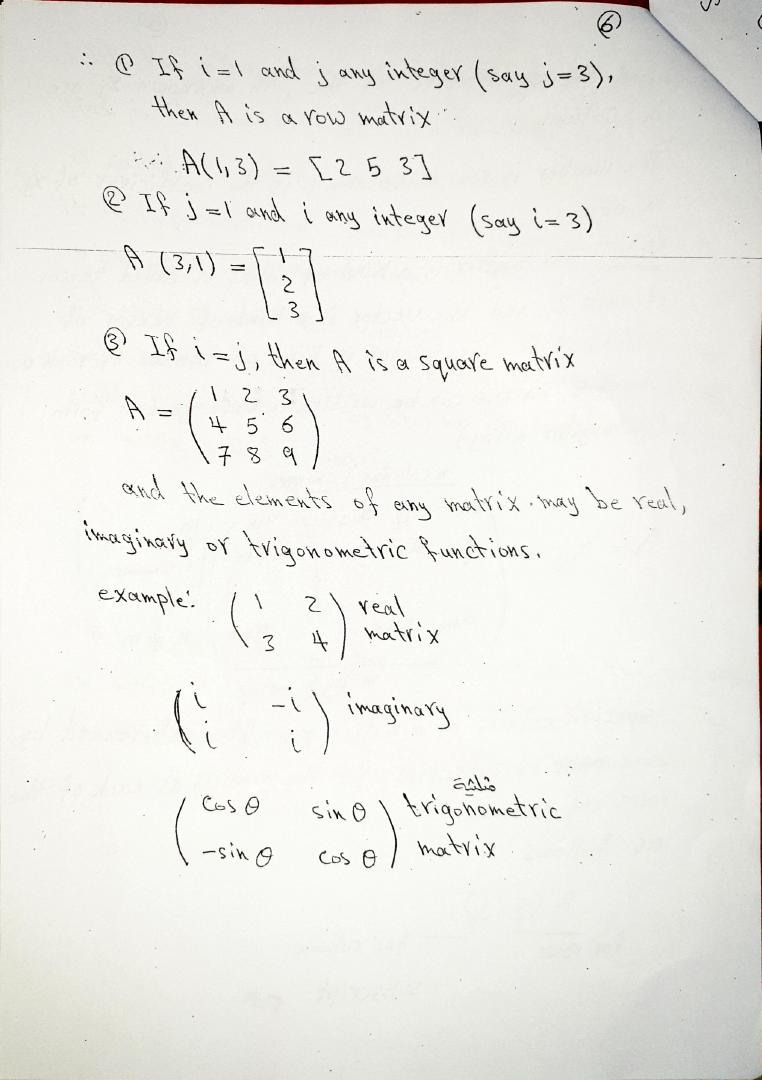 ⑥
∴ ① If i=1 and j any integer (say j=3),
then A is a row matrix
∴ A(1,3) = [2 5 3]
② If j=1 and i any integer (say i=3)
A (3,1) = [1
2
3]
③ If i=j, then A is a square matrix
A = (1 2 3
4 5 6
7 8 9)
and the elements of any matrix may be real,
imaginary or trigonometric functions.
example: (1 2 real
3 4) matrix
(i -i imaginary
i i)
مثلثية
(cos θ sin θ trigonometric
-sin θ cos θ) matrix